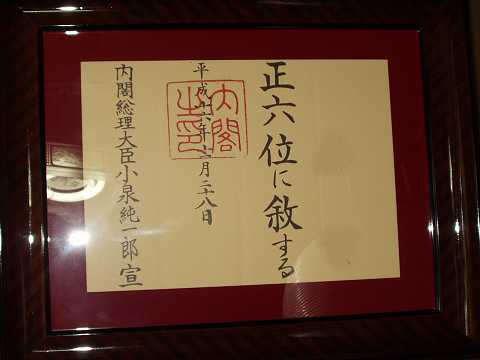 正六位に敘する
平成十六年十月二十八日
内閣総理大臣小泉純一郎 宣
内閣之印